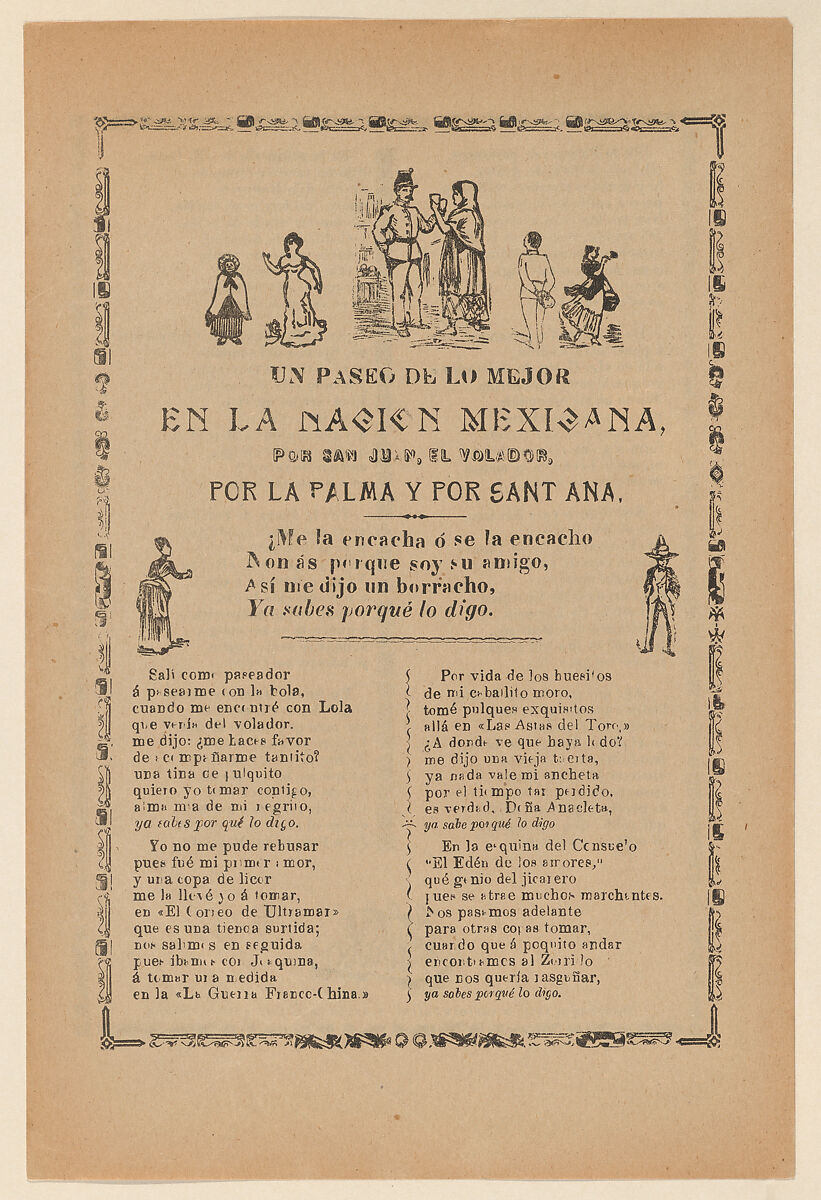 UN PASEO DE LO MEJOR
EN LA NACION MEXICANA,
POR SAN JUAN, EL VOLADOR,
POR LA PALMA Y POR SANTANA.
¿Me la encacha ó se la encacho
Non ás porque soy su amigo,
Así me dijo un borracho,
Ya sabes porqué lo digo.
Salí como paseador
á pasearme con la bola,
cuando me encontré con Lola
que venía del volador.
me dijo: ¿me haces favor
de acompañarme tantito?
una tina de pulquito
quiero yo tomar contigo,
alma mía de mi negrito,
ya sabes por qué lo digo.
Yo no me pude rehusar
pues fué mi primer amor,
y una copa de licor
me la llevé yo á tomar,
en «El Correo de Ultramar»
que es una tienda surtida;
nos salimos en seguida
pues íbamos con Joaquina,
á tomar una medida
en la «La Guerra Franco-China.»
Por vida de los huesitos
de mi caballito moro,
tomé pulques exquisitos
allá en «Las Astas del Toro,»
¿A donde ve que haya ledo?
me dijo una vieja tuerta,
ya nada vale mi ancheta
por el tiempo tan perdido,
es verdad, Doña Anacleta,
ya sabe porqué lo digo
En la esquina del Consuelo
"El Edén de los amores,"
qué genio del jicarero
pues se atrae muchos marchantes.
Nos pasamos adelante
para otras copas tomar,
cuando que á poquito andar
encontramos al Zorrillo
que nos quería rasguñar,
ya sabes porqué lo digo.